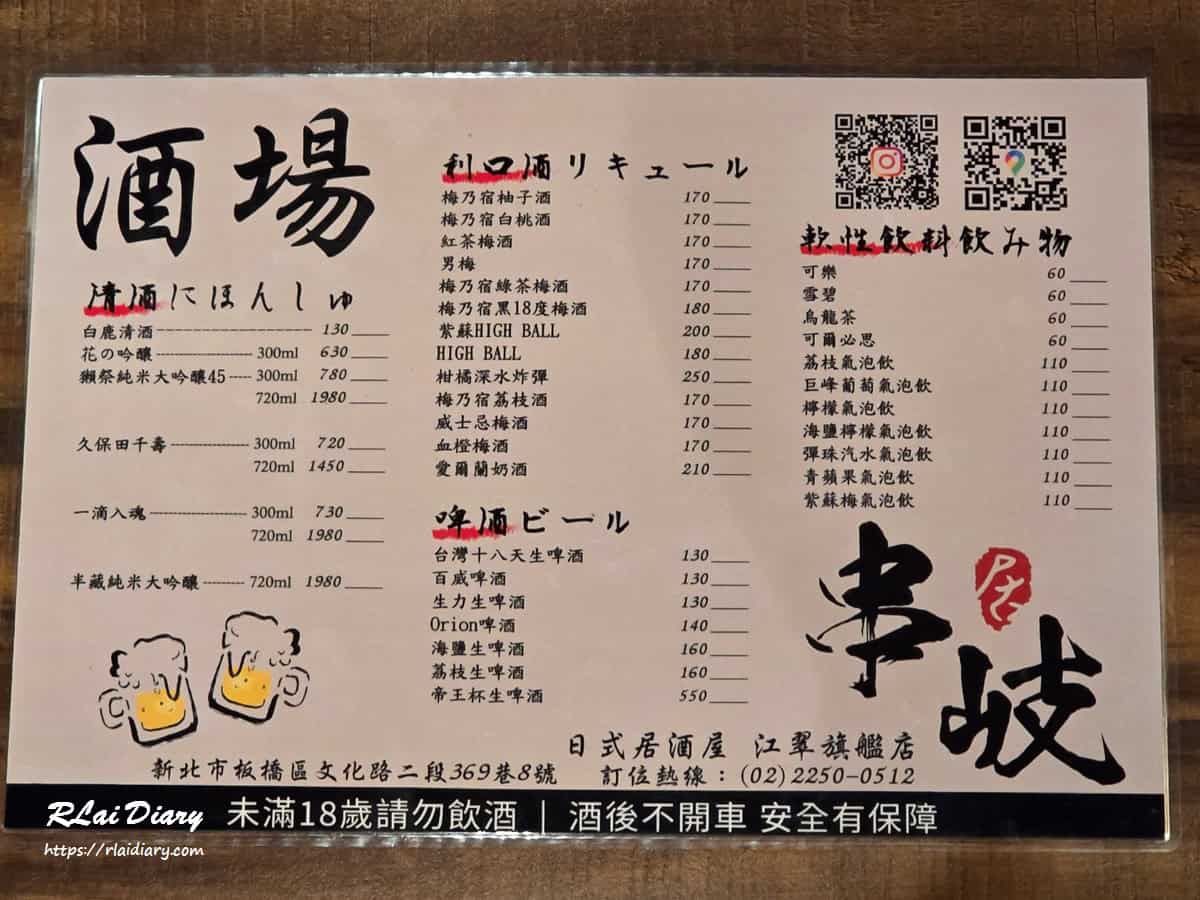 酒場
清酒にほんしゅ
白鹿清酒 130
花の吟釀 300ml 630
獺祭純米大吟釀45 300ml 780
720ml 1980
久保田千壽 300ml 720
720ml 1450
一滴入魂 300ml 730
720ml 1980
半藏純米大吟釀 720ml 1980
利口酒リキュール
梅乃宿柚子酒 170
梅乃宿白桃酒 170
紅茶梅酒 170
男梅 170
梅乃宿綠茶梅酒 170
梅乃宿黑18度梅酒 180
紫蘇HIGH BALL 200
HIGH BALL 180
柑橘深水炸彈 250
梅乃宿荔枝酒 170
威士忌梅酒 170
血橙梅酒 170
愛爾蘭奶酒 210
啤酒ビール
台灣十八天生啤酒 130
百威啤酒 130
生力生啤酒 130
Orion啤酒 140
海鹽生啤酒 160
荔枝生啤酒 160
帝王杯生啤酒 550
軟性飲料飲み物
可樂 60
雪碧 60
烏龍茶 60
可爾必思 60
荔枝氣泡飲 110
巨峰葡萄氣泡飲 110
檸檬氣泡飲 110
海鹽檸檬氣泡飲 110
彈珠汽水氣泡飲 110
青蘋果氣泡飲 110
紫蘇梅氣泡飲 110
串岐
日式居酒屋 江翠旗艦店
新北市板橋區文化路二段369巷8號 訂位熱線：(02)2250-0512
未滿18歲請勿飲酒 | 酒後不開車 安全有保障
RLai Diary
https://rlaidiary.com